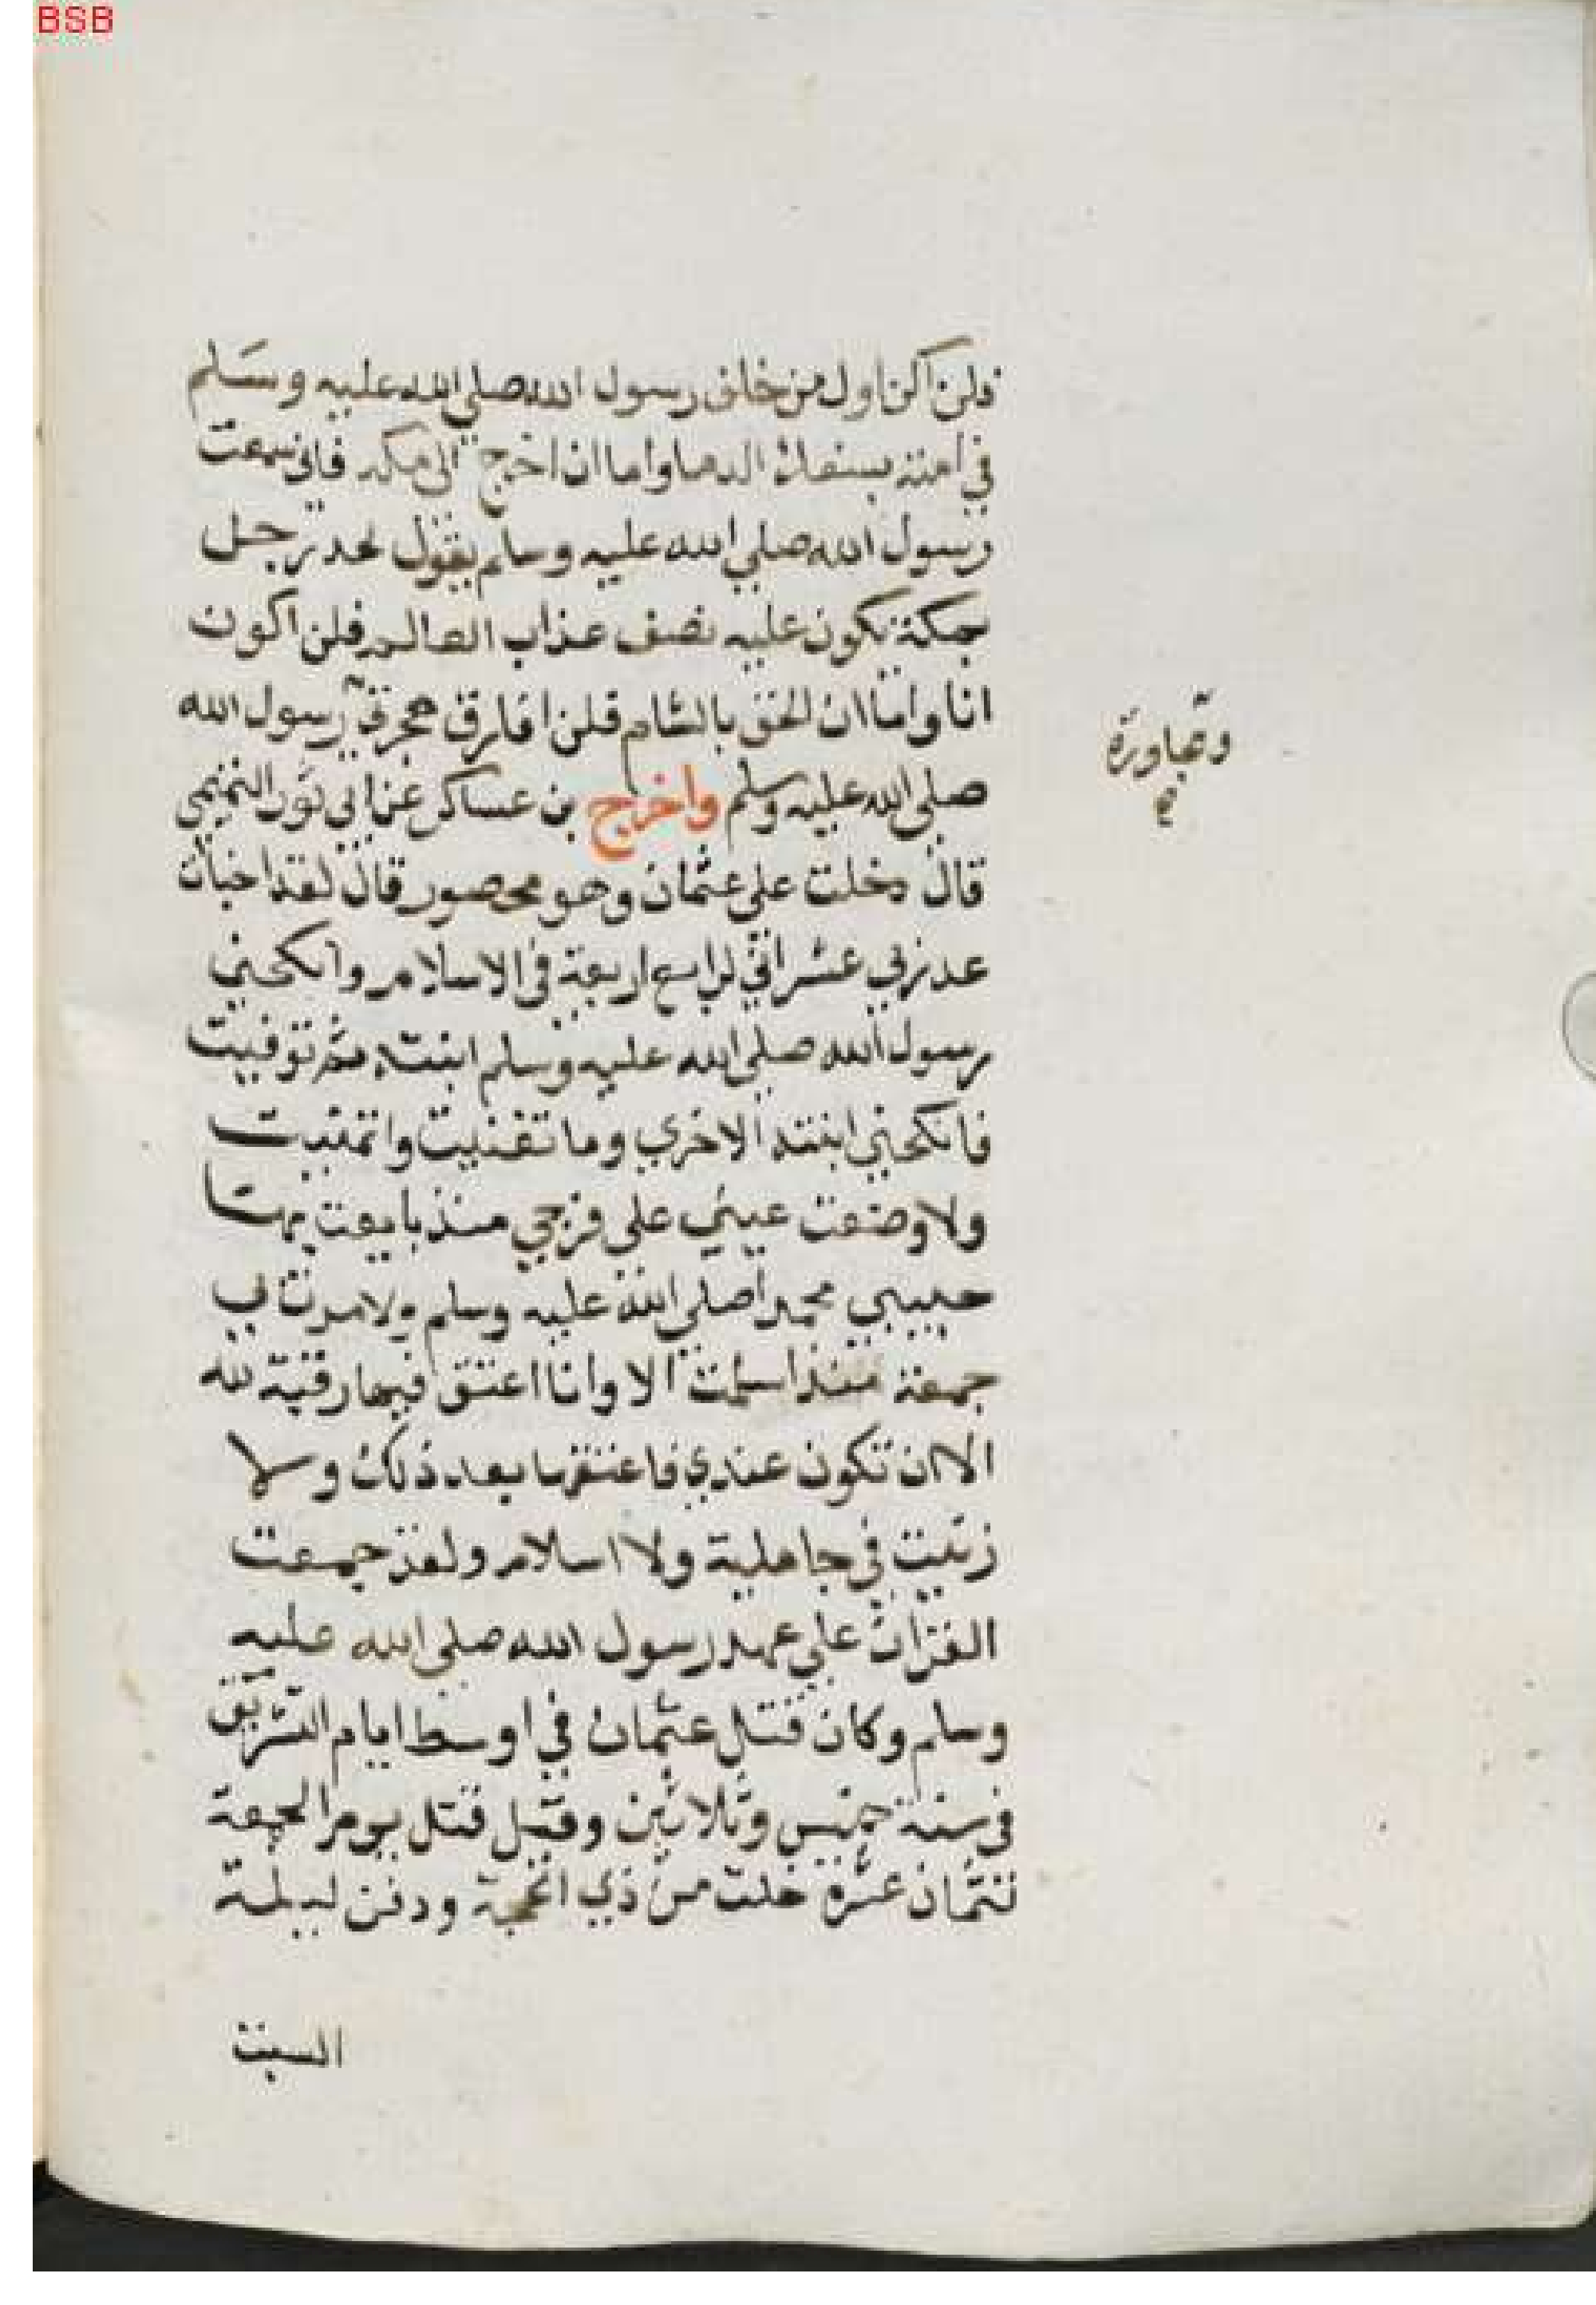 BSB
فلن اكن اول من خلف رسول الله صلي الله عليه وسلم
في امته بسفك الدما واما ان اخرج الى مكه فانى سمعت
رسول الله صلي الله عليه وسلم يقول يلحد رجل
بمكة يكون عليه نصف عذاب العالم فلن اكون
انا واما ان الحق بالشام فلن افارق هجرتي رسول الله
ومجاورة
صلي الله عليه وسلم واخرج بن عساكر عن ابي ثور التميمي
قال دخلت علي عثمان وهو محصور قال لقد اختبات
عند ربي عشر اني لرابع اربعة في الاسلام وانكحني
رسول الله صلي الله عليه وسلم ابنته ثم توفيت
فانكحني ابنته الاخري وما تغنيت ولا تمنيت
ولا وضعت يميني علي فرجي منذ بايعت بها
حبيبي محمدا صلي الله عليه وسلم ولا مرت بي
جمعة منذ اسلمت الا وانا اعتق فيها رقبة لله
الا ان تكون عندي فاعتقها بعد ذلك ولا
زنيت في جاهلية ولا اسلام ولقد جمعت
القران علي عهد رسول الله صلي الله عليه
وسلم وكان قتل عثمان في اوسط ايام التشريق
في سنة خمس وثلاثين وقيل قتل يوم الجمعة
لثمان عشرة خلت من ذي الحجة ودفن ليلة
السبت